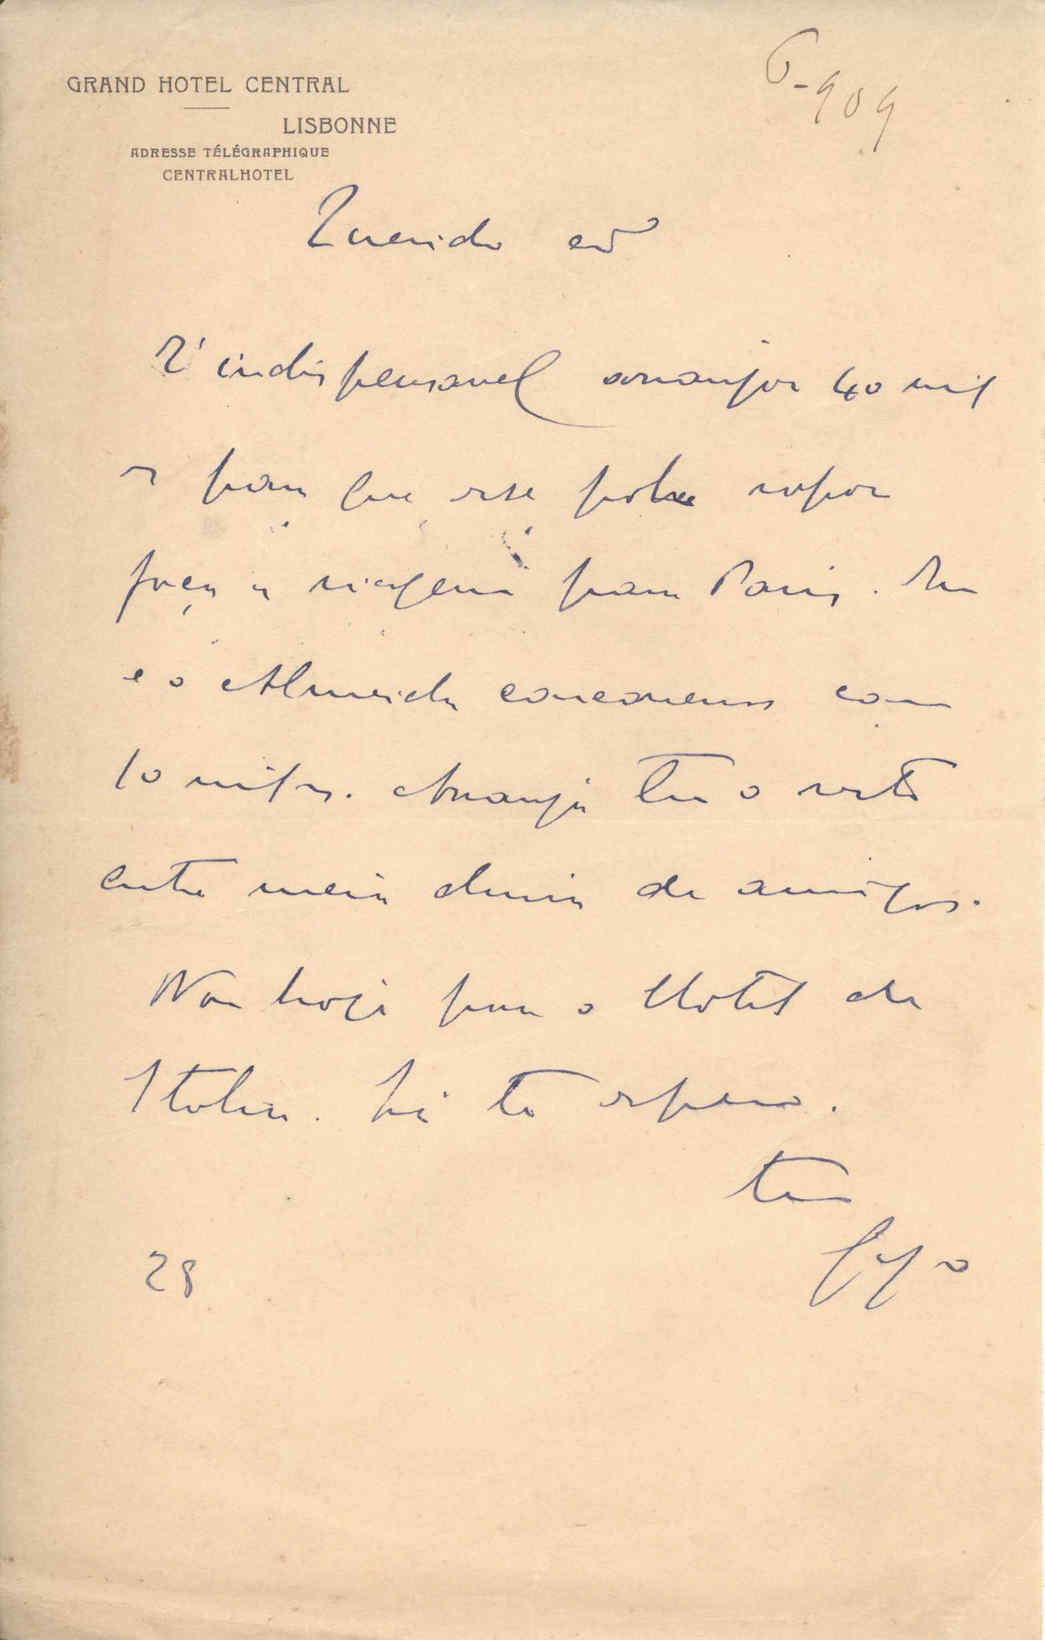 GRAND HOTEL CENTRAL
LISBONNE
ADRESSE TÉLÉGRAPHIQUE
CENTRALHOTEL
6-909
Querido
E' indispensavel arranjar 40 mil
rs para que esse pobre rapaz
faça a viagem para Paris. Eu
e o Almeida concorremos com
10 mil rs. Arranja tu o resto
entre meia duzia de amigos.
Vou hoje para o Hotel de
Italia. Lá te espero.
teu
28